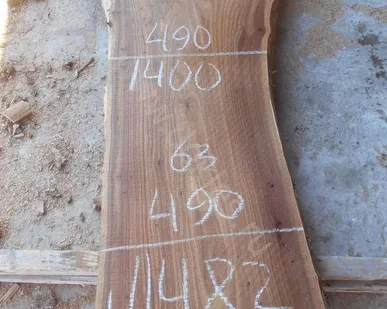 490
1400
63
490
11482